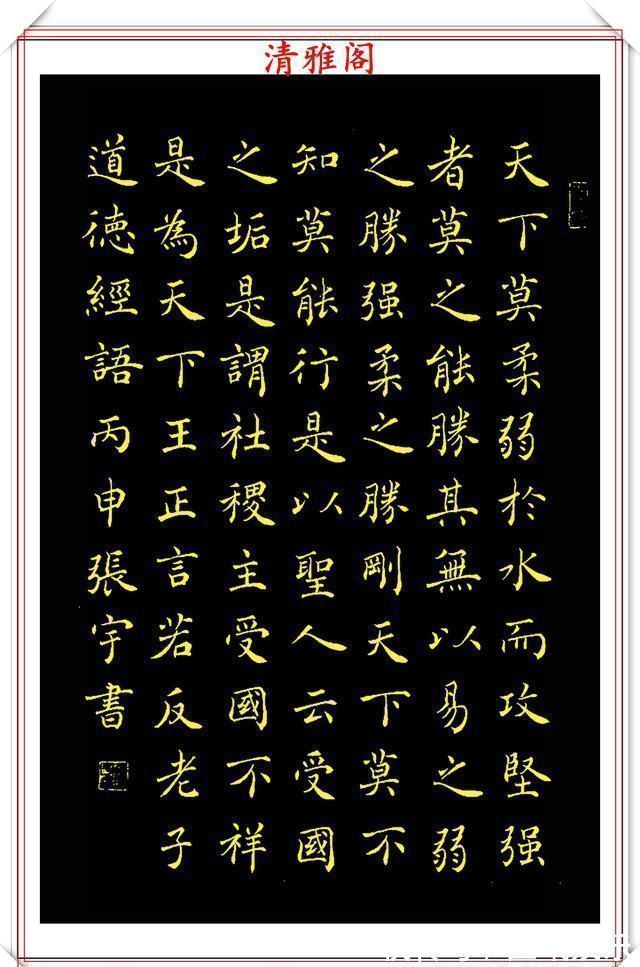 清雅阁
天下莫柔弱於水而攻堅强
者莫之能勝其無以易之弱
之勝强柔之勝剛天下莫不
知莫能行是以聖人云受國
之垢是謂社稷主受國不祥
是為天下王正言若反老子
道德經語丙申張宇書